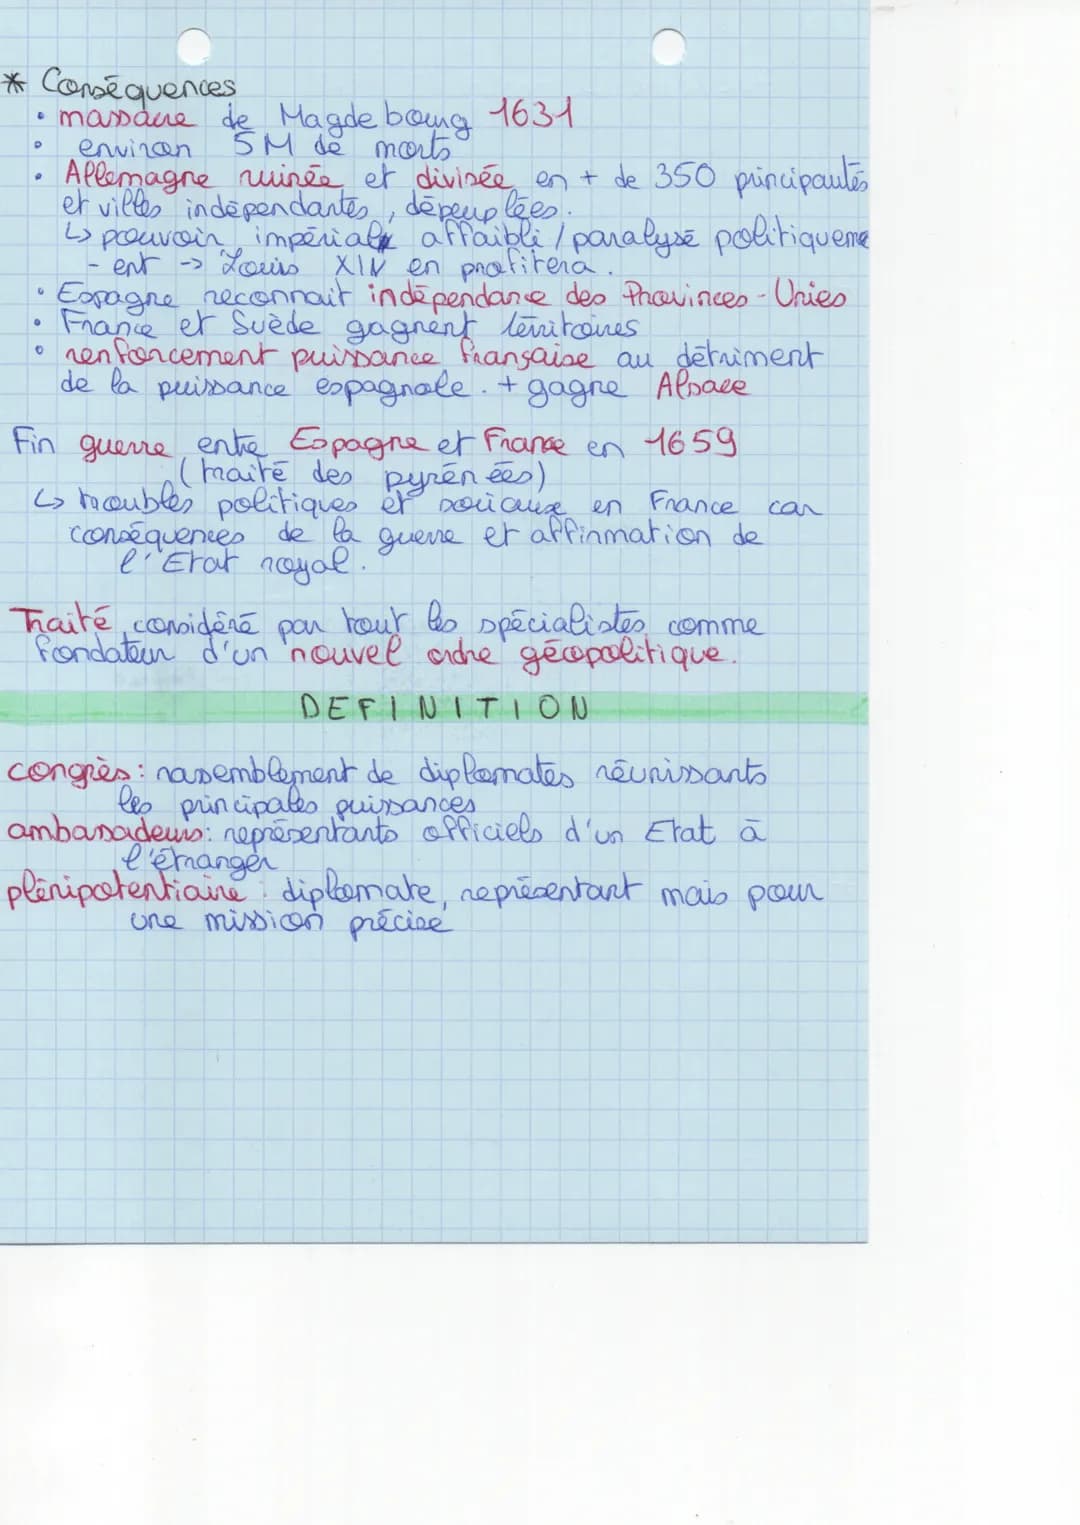 * Conséquences
• massacre de Magdebourg 1631
• environ 5M de morts
• Allemagne ruinée et divisée en + de 350 principautés
et villes indépendantes, dépeuplées.
↳ pouvoir impérial affaibli / paralysé politiqueme
- ent -> Louis XIV en profitera.
• Espagne reconnait indépendance des Provinces-Unies
• France et Suède gagnent territoires
• renforcement puissance française au détriment
de la puissance espagnole. + gagne Alsace
Fin guerre entre Espagne et France en 1659
(traité des pyrénées)
↳ troubles politiques et sociaux en France car
conséquences de la guerre et affirmation de
l'Etat royal.
Traité considéré par tout les spécialistes comme
fondateur d'un nouvel ordre géopolitique.
DEFINITION
congrès : rassemblement de diplomates réunissants
les principales puissances
ambassadeurs : représentants officiels d'un Etat à
l'étranger
plénipotentiaire : diplomate, représentant mais pour
une mission précise